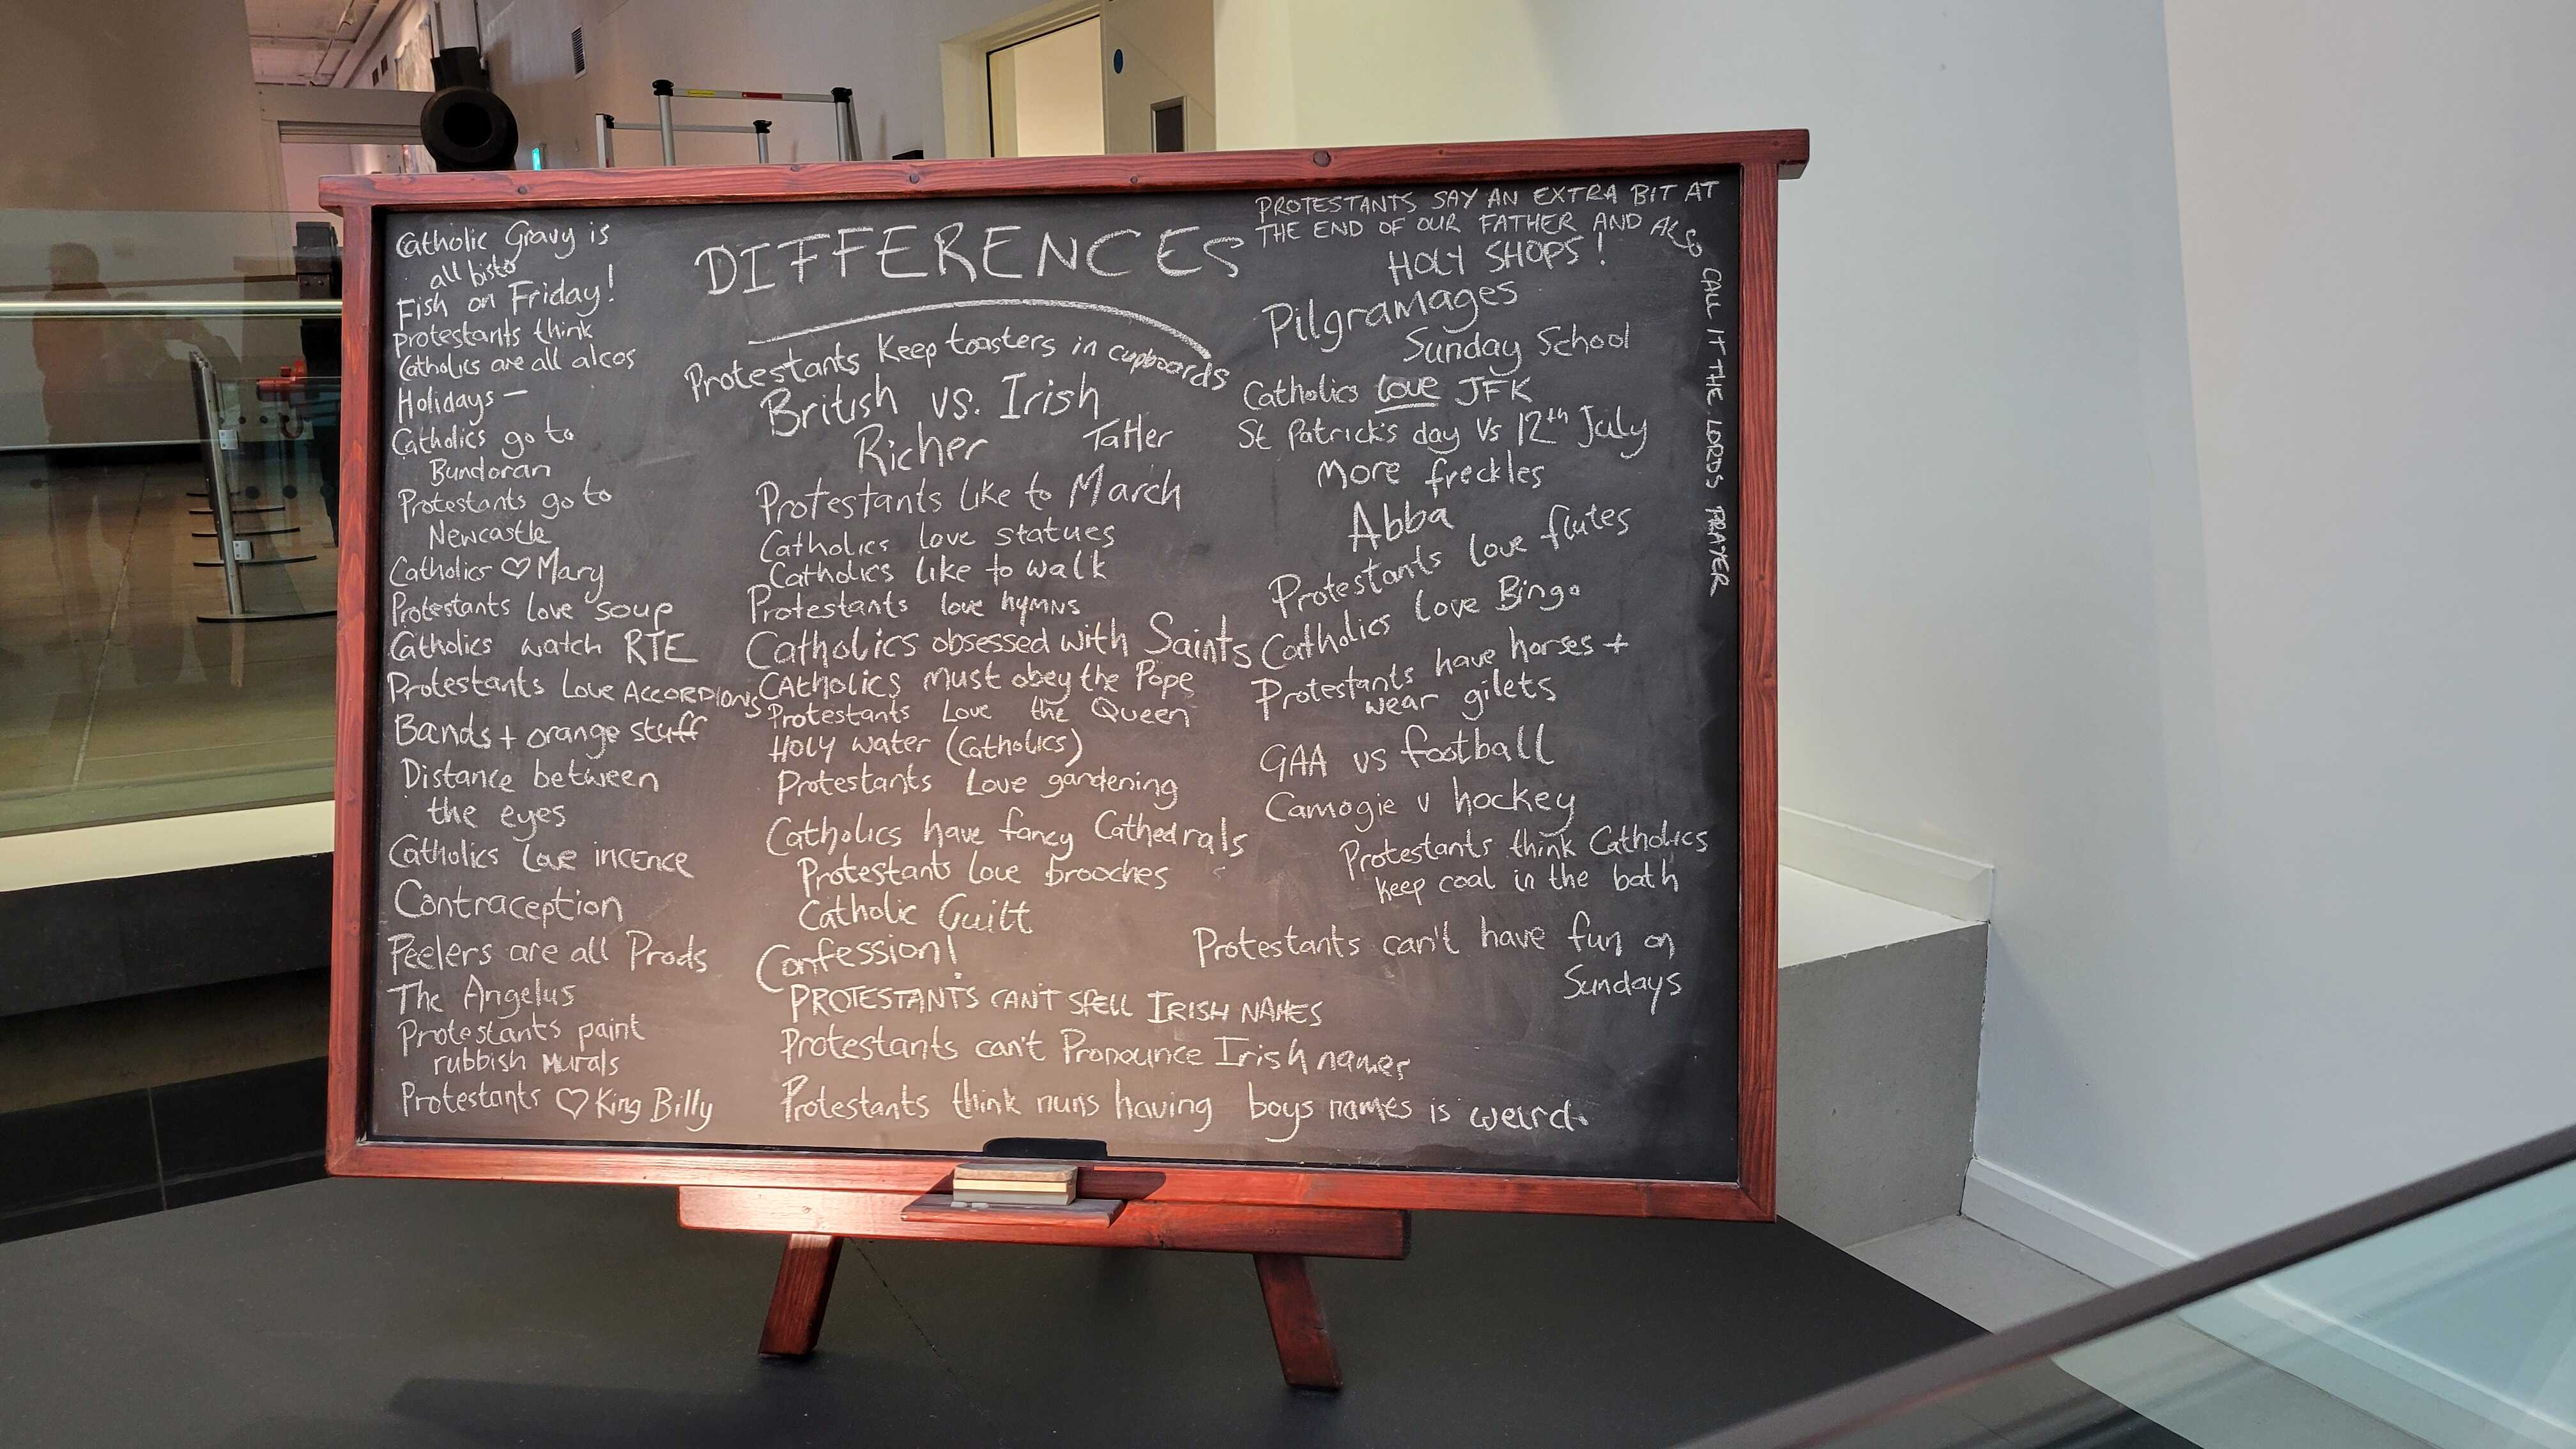 DIFFERENCES
Catholic Gravy is
all bisto
Fish on Friday!
Protestants think
Catholics are all alcos
Holidays —
Catholics go to
Bundoran
Protestants go to
Newcastle
Catholics ♡ Mary
Protestants love soup
Catholics watch RTE
Protestants Love ACCORDIONS
Bands + orange stuff
Distance between
the eyes
Catholics love incence
Contraception
Peelers are all Prods
The Angelus
Protestants paint
rubbish murals
Protestants ♡ King Billy
Protestants Keep toasters in cupboards
British vs. Irish
Richer Taller
Protestants like to March
Catholics love statues
Catholics like to walk
Protestants love hymns
Catholics obsessed with Saints
CAtholics must obey the Pope
Protestants Love the Queen
HOLY water (Catholics)
Protestants Love gardening
Catholics have fancy Cathedrals
Protestants love brooches
Catholic Guilt
Confession!
PROTESTANTS CAN'T SPELL IRISH NAMES
Protestants can't Pronounce Irish names
Protestants think nuns having boys names is weird.
PROTESTANTS SAY AN EXTRA BIT AT
THE END OF OUR FATHER AND ALSO CALL IT THE LORDS PRAYER
HOLY SHOPS!
Pilgramages
Sunday School
Catholics love JFK
St Patrick's day Vs 12th July
More freckles
Abba
Protestants love flutes
Catholics love Bingo
Protestants have horses +
wear gilets
GAA vs football
Camogie v hockey
Protestants think Catholics
keep coal in the bath
Protestants can't have fun on
Sundays